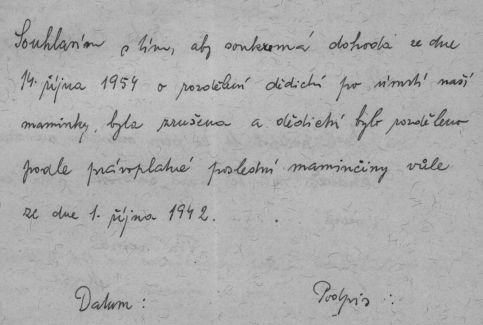 Souhlasím s tím, aby soukromá dohoda ze dne
14. října 1954 o rozdělení dědictví po úmrtí naší
maminky, byla zrušena a dědictví bylo rozděleno
podle právoplatné poslední maminčiny vůle
ze dne 1. října 1942.
Datum : Podpis :